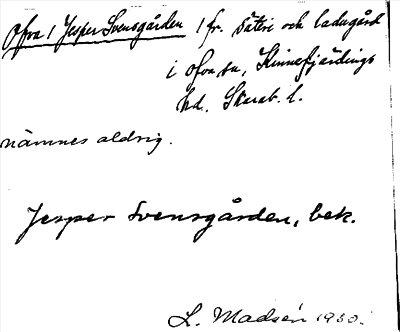 Ofra 1 Jesper Svensgården 1 fr. säteri och ladugård
i ofvan sn, Kinnefjärdings
hd. Skarab. l.
nämnes aldrig.
Jesper Svensgården, bek.
L. Madsén 1930.